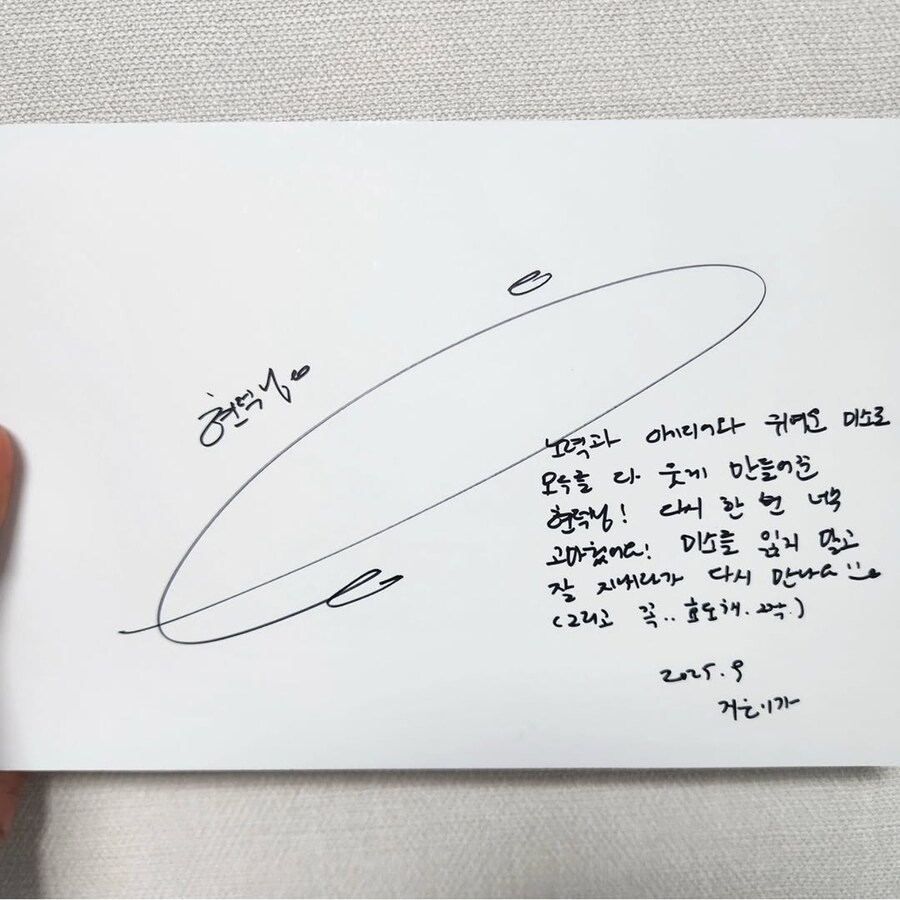 현덕님
노력과 아이디어와 귀여운 미소로
모두를 다 웃게 만들어준
현덕님! 다시 한 번 너무
고마웠어요! 미소를 잃지 말고
잘 지내다가 다시 만나요
(그리고 꼭.. 효도해. 꼭.)
2025. 9